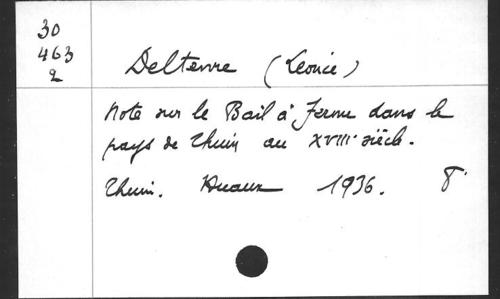 30
463
2
Deltenre (Léonie)
Note sur le Bail à Ferme dans le
pays de Thuin au XVIIIe siècle.
Thuin. 1936. 8°